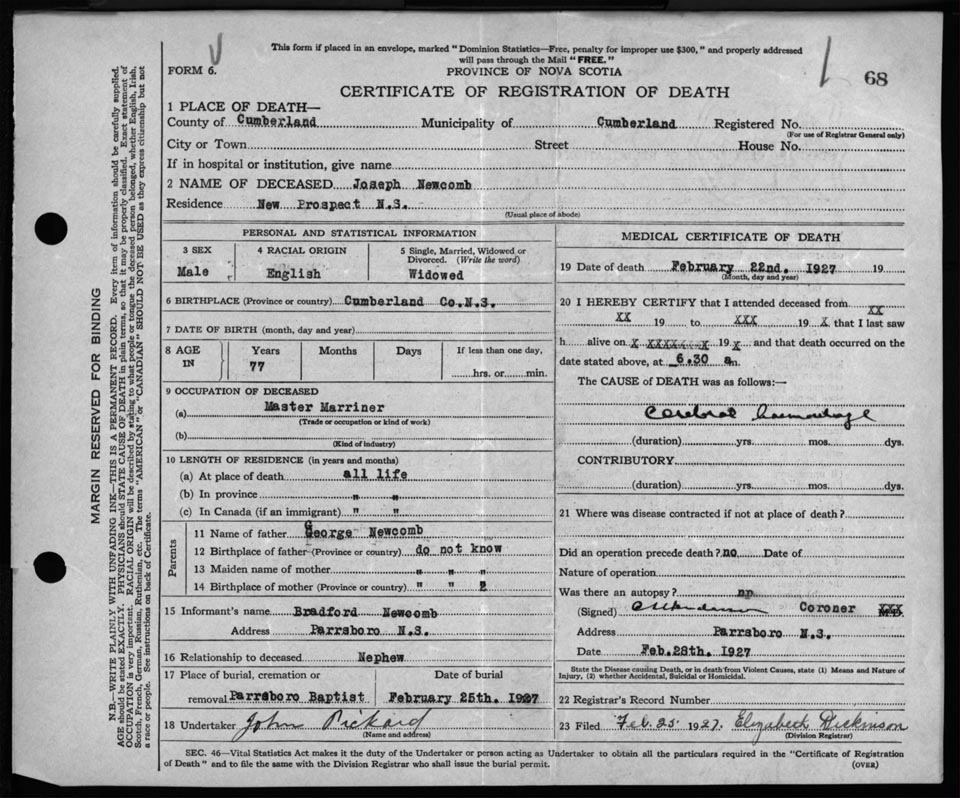 This form if placed in an envelope, marked "Dominion Statistics—Free, penalty for improper use $300," and properly addressed
will pass through the Mail "FREE."
FORM 6.
PROVINCE OF NOVA SCOTIA
68
CERTIFICATE OF REGISTRATION OF DEATH
1 PLACE OF DEATH—
County of Cumberland Municipality of Cumberland Registered No.
(For use of Registrar General only)
City or Town Street House No.
If in hospital or institution, give name
2 NAME OF DECEASED Joseph Newcomb
Residence New Prospect N.S.
(Usual place of abode)
PERSONAL AND STATISTICAL INFORMATION
3 SEX 4 RACIAL ORIGIN 5 Single, Married, Widowed or
Divorced. (Write the word)
Male English Widowed
6 BIRTHPLACE (Province or country) Cumberland Co.N.S.
7 DATE OF BIRTH (month, day and year)
8 AGE IN Years Months Days If less than one day,
77 hrs. or min.
9 OCCUPATION OF DECEASED
(a) Master Marriner
(Trade or occupation or kind of work)
(b)
(Kind of industry)
10 LENGTH OF RESIDENCE (in years and months)
(a) At place of death all life
(b) In province " "
(c) In Canada (if an immigrant) " "
Parents
11 Name of father George Newcomb
12 Birthplace of father (Province or country) do not know
13 Maiden name of mother " " "
14 Birthplace of mother (Province or country) " "
15 Informant's name Bradford Newcomb
Address Parrsboro N.S.
16 Relationship to deceased Nephew
17 Place of burial, cremation or Date of burial
removal Parrsboro Baptist February 25th. 1927
18 Undertaker John Pickard
(Name and address)
MEDICAL CERTIFICATE OF DEATH
19 Date of death February 22nd. 1927 19
(Month, day and year)
20 I HEREBY CERTIFY that I attended deceased from XX
XX 19 to XXX 19 X that I last saw
h alive on X XXXXX X 19 X and that death occurred on the
date stated above, at 6.30 a m.
The CAUSE of DEATH was as follows:—
Cerebral haemorrhage
(duration) yrs. mos. dys.
CONTRIBUTORY
(duration) yrs. mos. dys.
21 Where was disease contracted if not at place of death?
Did an operation precede death? no Date of
Nature of operation
Was there an autopsy? no
(Signed) Coroner XXX
Address Parrsboro N.S.
Date Feb.28th. 1927
State the Disease causing Death, or in death from Violent Causes, state (1) Means and Nature of
Injury, (2) whether Accidental, Suicidal or Homicidal.
22 Registrar's Record Number
23 Filed Feb. 25 1927. Elizabeth Dickinson
(Division Registrar)
SEC. 46—Vital Statistics Act makes it the duty of the Undertaker or person acting as Undertaker to obtain all the particulars required in the "Certificate of Registration
of Death" and to file the same with the Division Registrar who shall issue the burial permit.
(OVER)
MARGIN RESERVED FOR BINDING
N.B.—WRITE PLAINLY WITH UNFADING INK—THIS IS A PERMANENT RECORD. Every item of information should be carefully supplied.
AGE should be stated EXACTLY. PHYSICIANS should STATE CAUSE OF DEATH in plain terms, so that it may be properly classified. Exact statement of
OCCUPATION is very important. RACIAL ORIGIN will be described by stating to what people or tongue the deceased person belonged, whether English, Irish,
Scotch, French, German, Russian, Ruthenian, etc. The terms "AMERICAN" or "CANADIAN" SHOULD NOT BE USED as they express citizenship but not
a race or people. See instructions on back of Certificate.